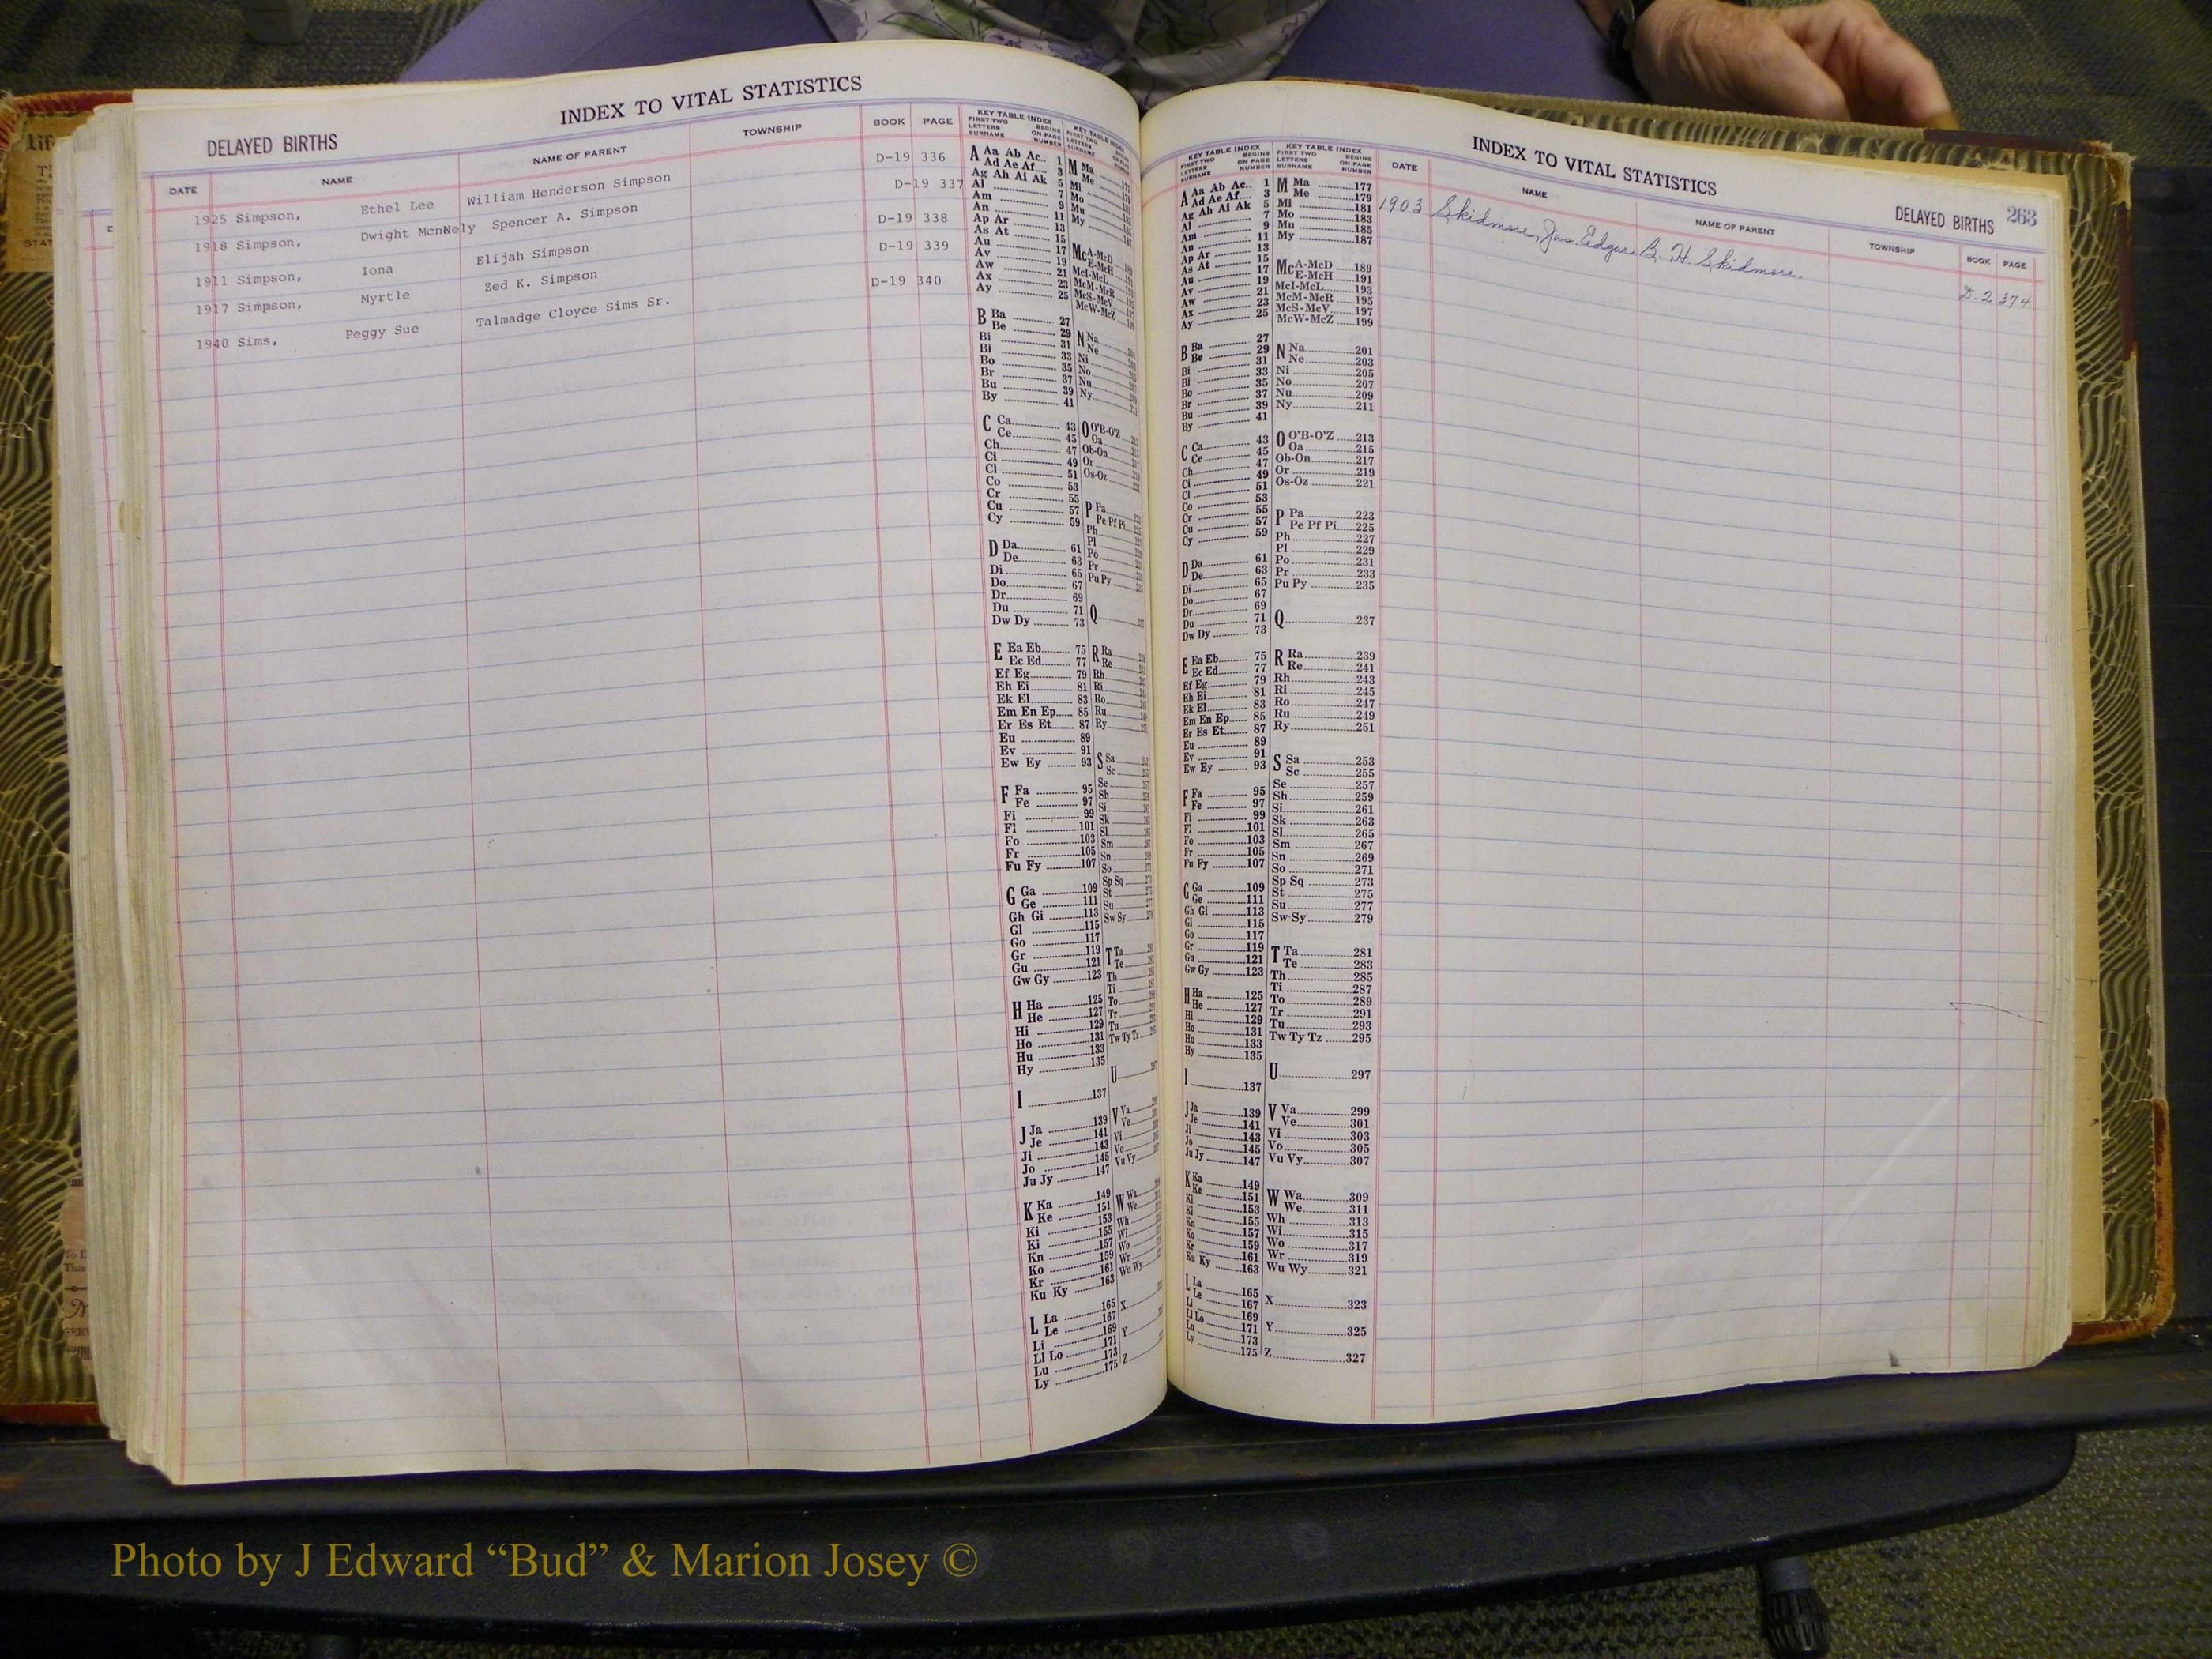 INDEX TO VITAL STATISTICS
DELAYED BIRTHS
DATE NAME NAME OF PARENT TOWNSHIP BOOK PAGE
1925 Simpson, Ethel Lee William Henderson Simpson D-19 336
1918 Simpson, Dwight McnNely Spencer A. Simpson D-19 337
1911 Simpson, Iona Elijah Simpson D-19 338
1917 Simpson, Myrtle Zed K. Simpson D-19 339
1940 Sims, Peggy Sue Talmadge Cloyce Sims Sr. D-19 340
INDEX TO VITAL STATISTICS
DELAYED BIRTHS 263
DATE NAME NAME OF PARENT TOWNSHIP BOOK PAGE
1903 Skidmore, Jas. Edgar B. H. Skidmore D-2 374
KEY TABLE INDEX KEY TABLE INDEX
FIRST TWO LETTERS SURNAME BEGINS ON PAGE NUMBER
A Aa Ab Ac 1
Ad Ae Af 3
Ag Ah Ai Ak 5
Al 7
Am 9
An 11
Ap Ar 13
As At 15
Au 17
Av 19
Aw 21
Ax 23
Ay 25
B Ba 27
Be 29
Bi 31
Bi 33
Bo 35
Br 37
Bu 39
By 41
C Ca 43
Ce 45
Ch 47
Ci 49
Cl 51
Co 53
Cr 55
Cu 57
Cy 59
D Da 61
De 63
Di 65
Do 67
Dr 69
Du 71
Dw Dy 73
E Ea Eb 75
Ec Ed 77
Ef Eg 79
Eh Ei 81
Ek El 83
Em En Ep 85
Er Es Et 87
Eu 89
Ev 91
Ew Ey 93
F Fa 95
Fe 97
Fi 99
Fl 101
Fo 103
Fr 105
Fu Fy 107
G Ga 109
Ge 111
Gh Gi 113
Gl 115
Go 117
Gr 119
Gu 121
Gw Gy 123
H Ha 125
He 127
Hi 129
Ho 131
Hu 133
Hy 135
I 137
J Ja 139
Je 141
Ji 143
Jo 145
Ju Jy 147
K Ka 149
Ke 151
Ki 153
Ki 155
Kn 157
Ko 159
Kr 161
Ku Ky 163
L La 165
Le 167
Li 169
Ll Lo 171
Lu 173
Ly 175
M Ma 177
Me 179
Mi 181
Mo 183
Mu 185
My 187
McA-McD 189
McE-McH 191
McI-McL 193
McM-McR 195
McS-McV 197
McW-McZ 199
N Na 201
Ne 203
Ni 205
No 207
Nu 209
Ny 211
O O'B-O'Z 213
Oa 215
Ob-On 217
Or 219
Os-Oz 221
P Pa 223
Pe Pf Pi 225
Ph 227
Pl 229
Po 231
Pr 233
Pu Py 235
Q 237
R Ra 239
Re 241
Rh 243
Ri 245
Ro 247
Ru 249
Ry 251
S Sa 253
Sc 255
Se 257
Sh 259
Si 261
Sk 263
Sl 265
Sm 267
Sn 269
So 271
Sp Sq 273
St 275
Su 277
Sw Sy 279
T Ta 281
Te 283
Th 285
Ti 287
To 289
Tr 291
Tu 293
Tw Ty Tz 295
U 297
V Va 299
Ve 301
Vi 303
Vo 305
Vu Vy 307
W Wa 309
We 311
Wh 313
Wi 315
Wo 317
Wr 319
Wu Wy 321
X 323
Y 325
Z 327
Photo by J Edward “Bud” & Marion Josey ©